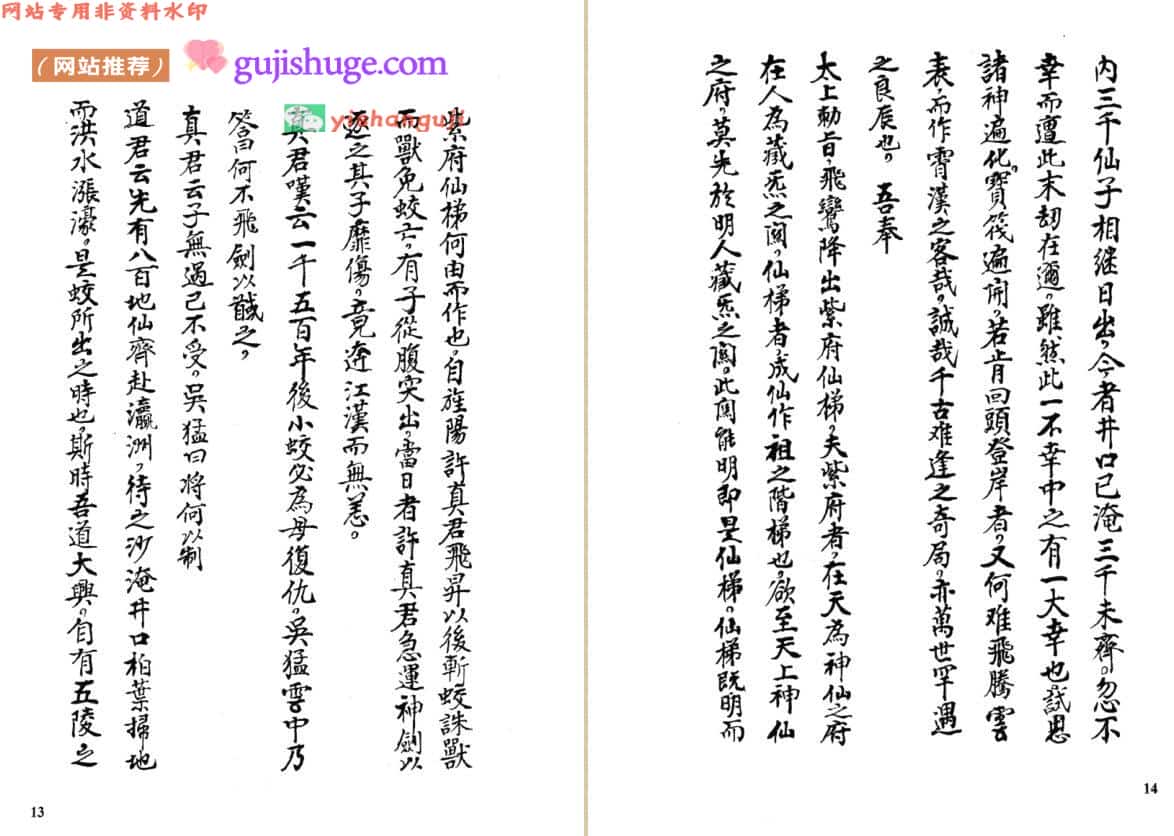 网站专用非资料水印
（网站推荐）
gujishuge.com
yishanguji
紫府仙梯何由而作也。自旌陽許真君飛昇以後斬蛟誅獸
而獸免蛟亡。有子從腹突出。當日者許真君急運神劍以
逐之其子靡傷。竟逩江漢而無恙。
真君嘆云一千五百年後小蛟必為母復仇。吳猛雲中乃
答曰何不飛劍以馘之。
真君云子無過己不受。吳猛曰將何以制
道君云先有八百地仙齊赴瀛洲。待之沙淹井口柏葉掃地
而洪水漲濠。是蛟所出之時也。斯時吾道大興。自有五陵之
13
內三千仙子相継日出。今者井口已淹三千未齊。忽不
幸而遭此末刧在邇。雖然此一不幸中之有一大幸也試思
諸神遍化。寶筏遍開。若肯回頭登岸者。又何难飛騰雲
表。而作霄漢之客哉。誠哉千古难逢之奇局。亦萬世罕遇
之良辰也。 吾奉
太上勅旨。飛鸞降出紫府仙梯。夫紫府者。在天為神仙之府
在人為藏炁之関。仙梯者成仙作祖之階梯也。欲至天上神仙
之府。莫先於明人藏炁之関。此関能明即是仙梯。仙梯既明而
14